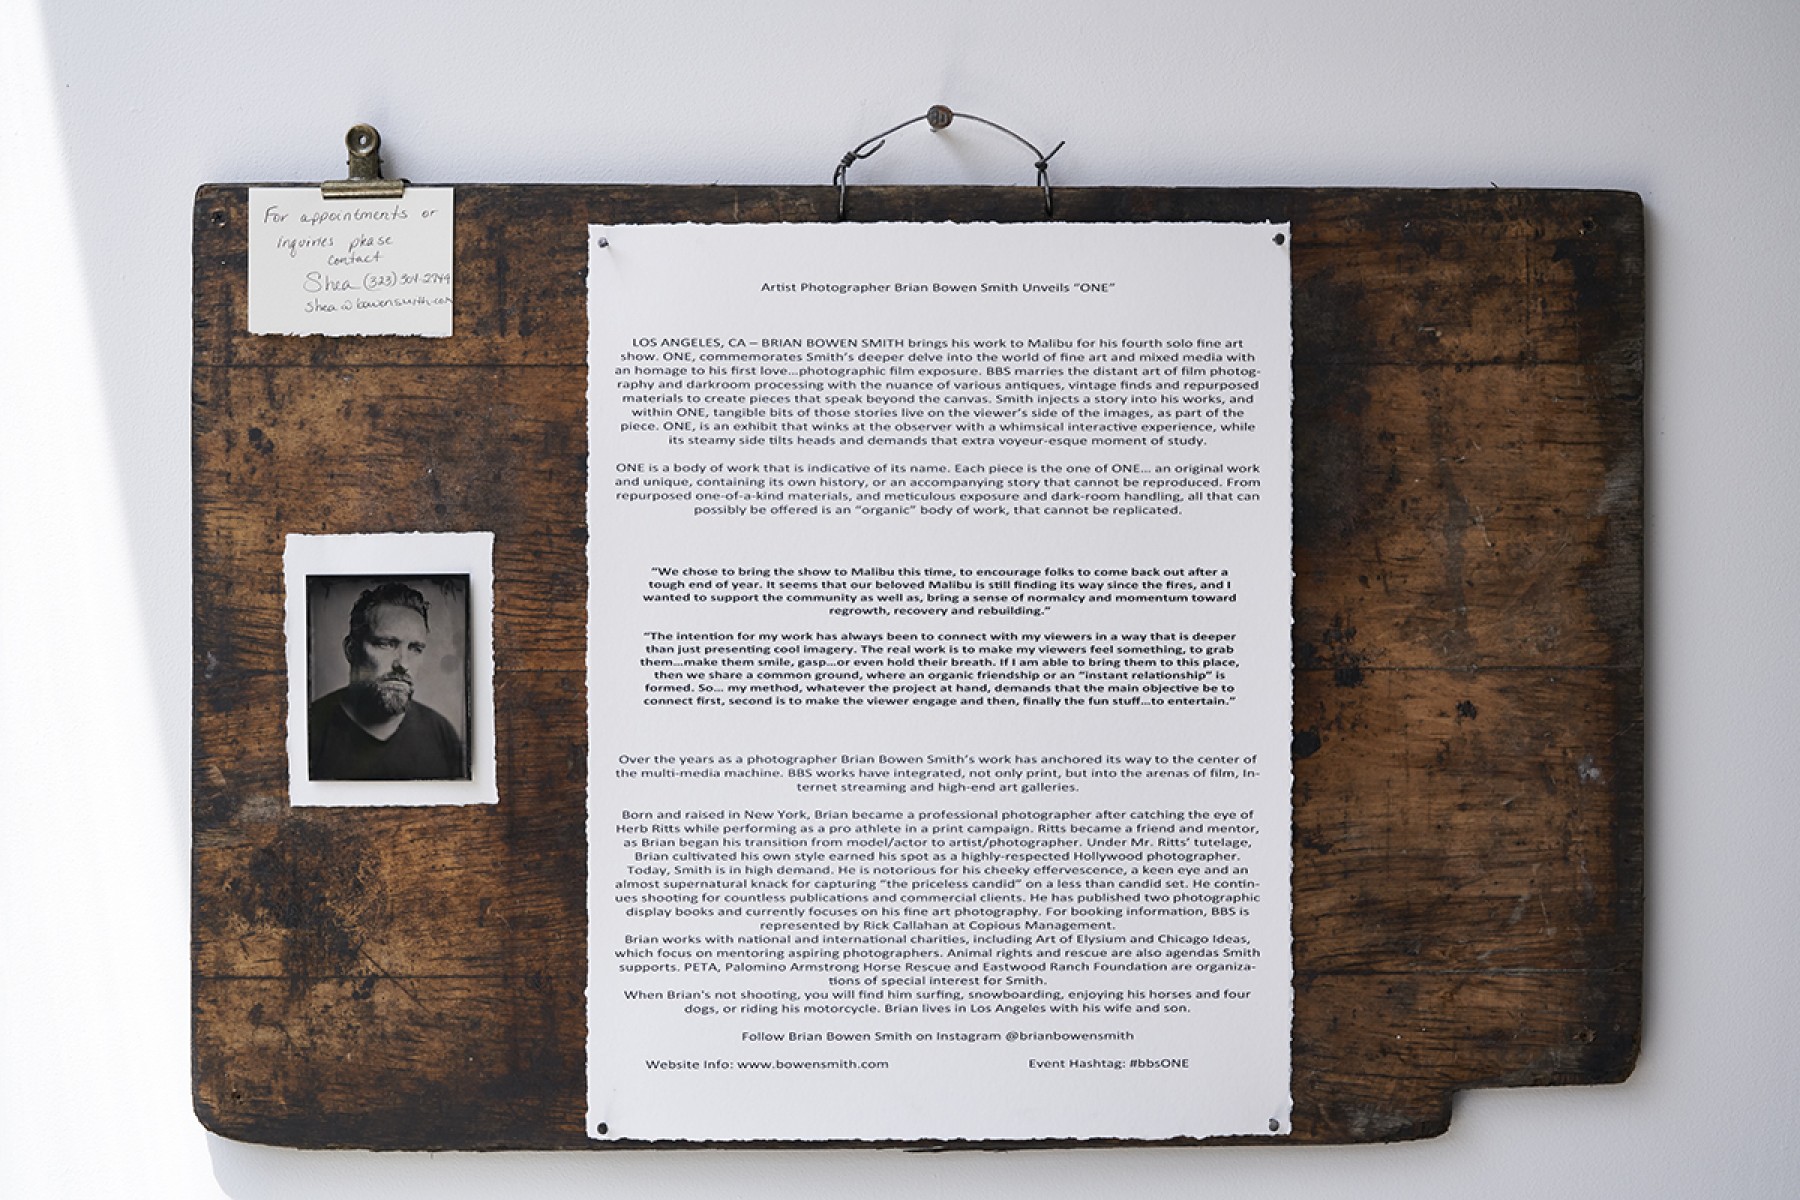 For appointments or
inquiries please
contact
Shea (323) 304-2744
shea@bowensmith.com
Artist Photographer Brian Bowen Smith Unveils “ONE”
LOS ANGELES, CA – BRIAN BOWEN SMITH brings his work to Malibu for his fourth solo fine art
show. ONE, commemorates Smith’s deeper delve into the world of fine art and mixed media with
an homage to his first love...photographic film exposure. BBS marries the distant art of film photog-
raphy and darkroom processing with the nuance of various antiques, vintage finds and repurposed
materials to create pieces that speak beyond the canvas. Smith injects a story into his works, and
within ONE, tangible bits of those stories live on the viewer’s side of the images, as part of the
piece. ONE, is an exhibit that winks at the observer with a whimsical interactive experience, while
its steamy side tilts heads and demands that extra voyeur-esque moment of study.
ONE is a body of work that is indicative of its name. Each piece is the one of ONE... an original work
and unique, containing its own history, or an accompanying story that cannot be reproduced. From
repurposed one-of-a-kind materials, and meticulous exposure and dark-room handling, all that can
possibly be offered is an “organic” body of work, that cannot be replicated.
“We chose to bring the show to Malibu this time, to encourage folks to come back out after a
tough end of year. It seems that our beloved Malibu is still finding its way since the fires, and I
wanted to support the community as well as, bring a sense of normalcy and momentum toward
regrowth, recovery and rebuilding.”
“The intention for my work has always been to connect with my viewers in a way that is deeper
than just presenting cool imagery. The real work is to make my viewers feel something, to grab
them...make them smile, gasp...or even hold their breath. If I am able to bring them to this place,
then we share a common ground, where an organic friendship or an “instant relationship” is
formed. So... my method, whatever the project at hand, demands that the main objective be to
connect first, second is to make the viewer engage and then, finally the fun stuff...to entertain.”
Over the years as a photographer Brian Bowen Smith’s work has anchored its way to the center of
the multi-media machine. BBS works have integrated, not only print, but into the arenas of film, In-
ternet streaming and high-end art galleries.
Born and raised in New York, Brian became a professional photographer after catching the eye of
Herb Ritts while performing as a pro athlete in a print campaign. Ritts became a friend and mentor,
as Brian began his transition from model/actor to artist/photographer. Under Mr. Ritts’ tutelage,
Brian cultivated his own style earned his spot as a highly-respected Hollywood photographer.
Today, Smith is in high demand. He is notorious for his cheeky effervescence, a keen eye and an
almost supernatural knack for capturing “the priceless candid” on a less than candid set. He contin-
ues shooting for countless publications and commercial clients. He has published two photographic
display books and currently focuses on his fine art photography. For booking information, BBS is
represented by Rick Callahan at Copious Management.
Brian works with national and international charities, including Art of Elysium and Chicago Ideas,
which focus on mentoring aspiring photographers. Animal rights and rescue are also agendas Smith
supports. PETA, Palomino Armstrong Horse Rescue and Eastwood Ranch Foundation are organiza-
tions of special interest for Smith.
When Brian's not shooting, you will find him surfing, snowboarding, enjoying his horses and four
dogs, or riding his motorcycle. Brian lives in Los Angeles with his wife and son.
Follow Brian Bowen Smith on Instagram @brianbowensmith
Website Info: www.bowensmith.com Event Hashtag: #bbsONE